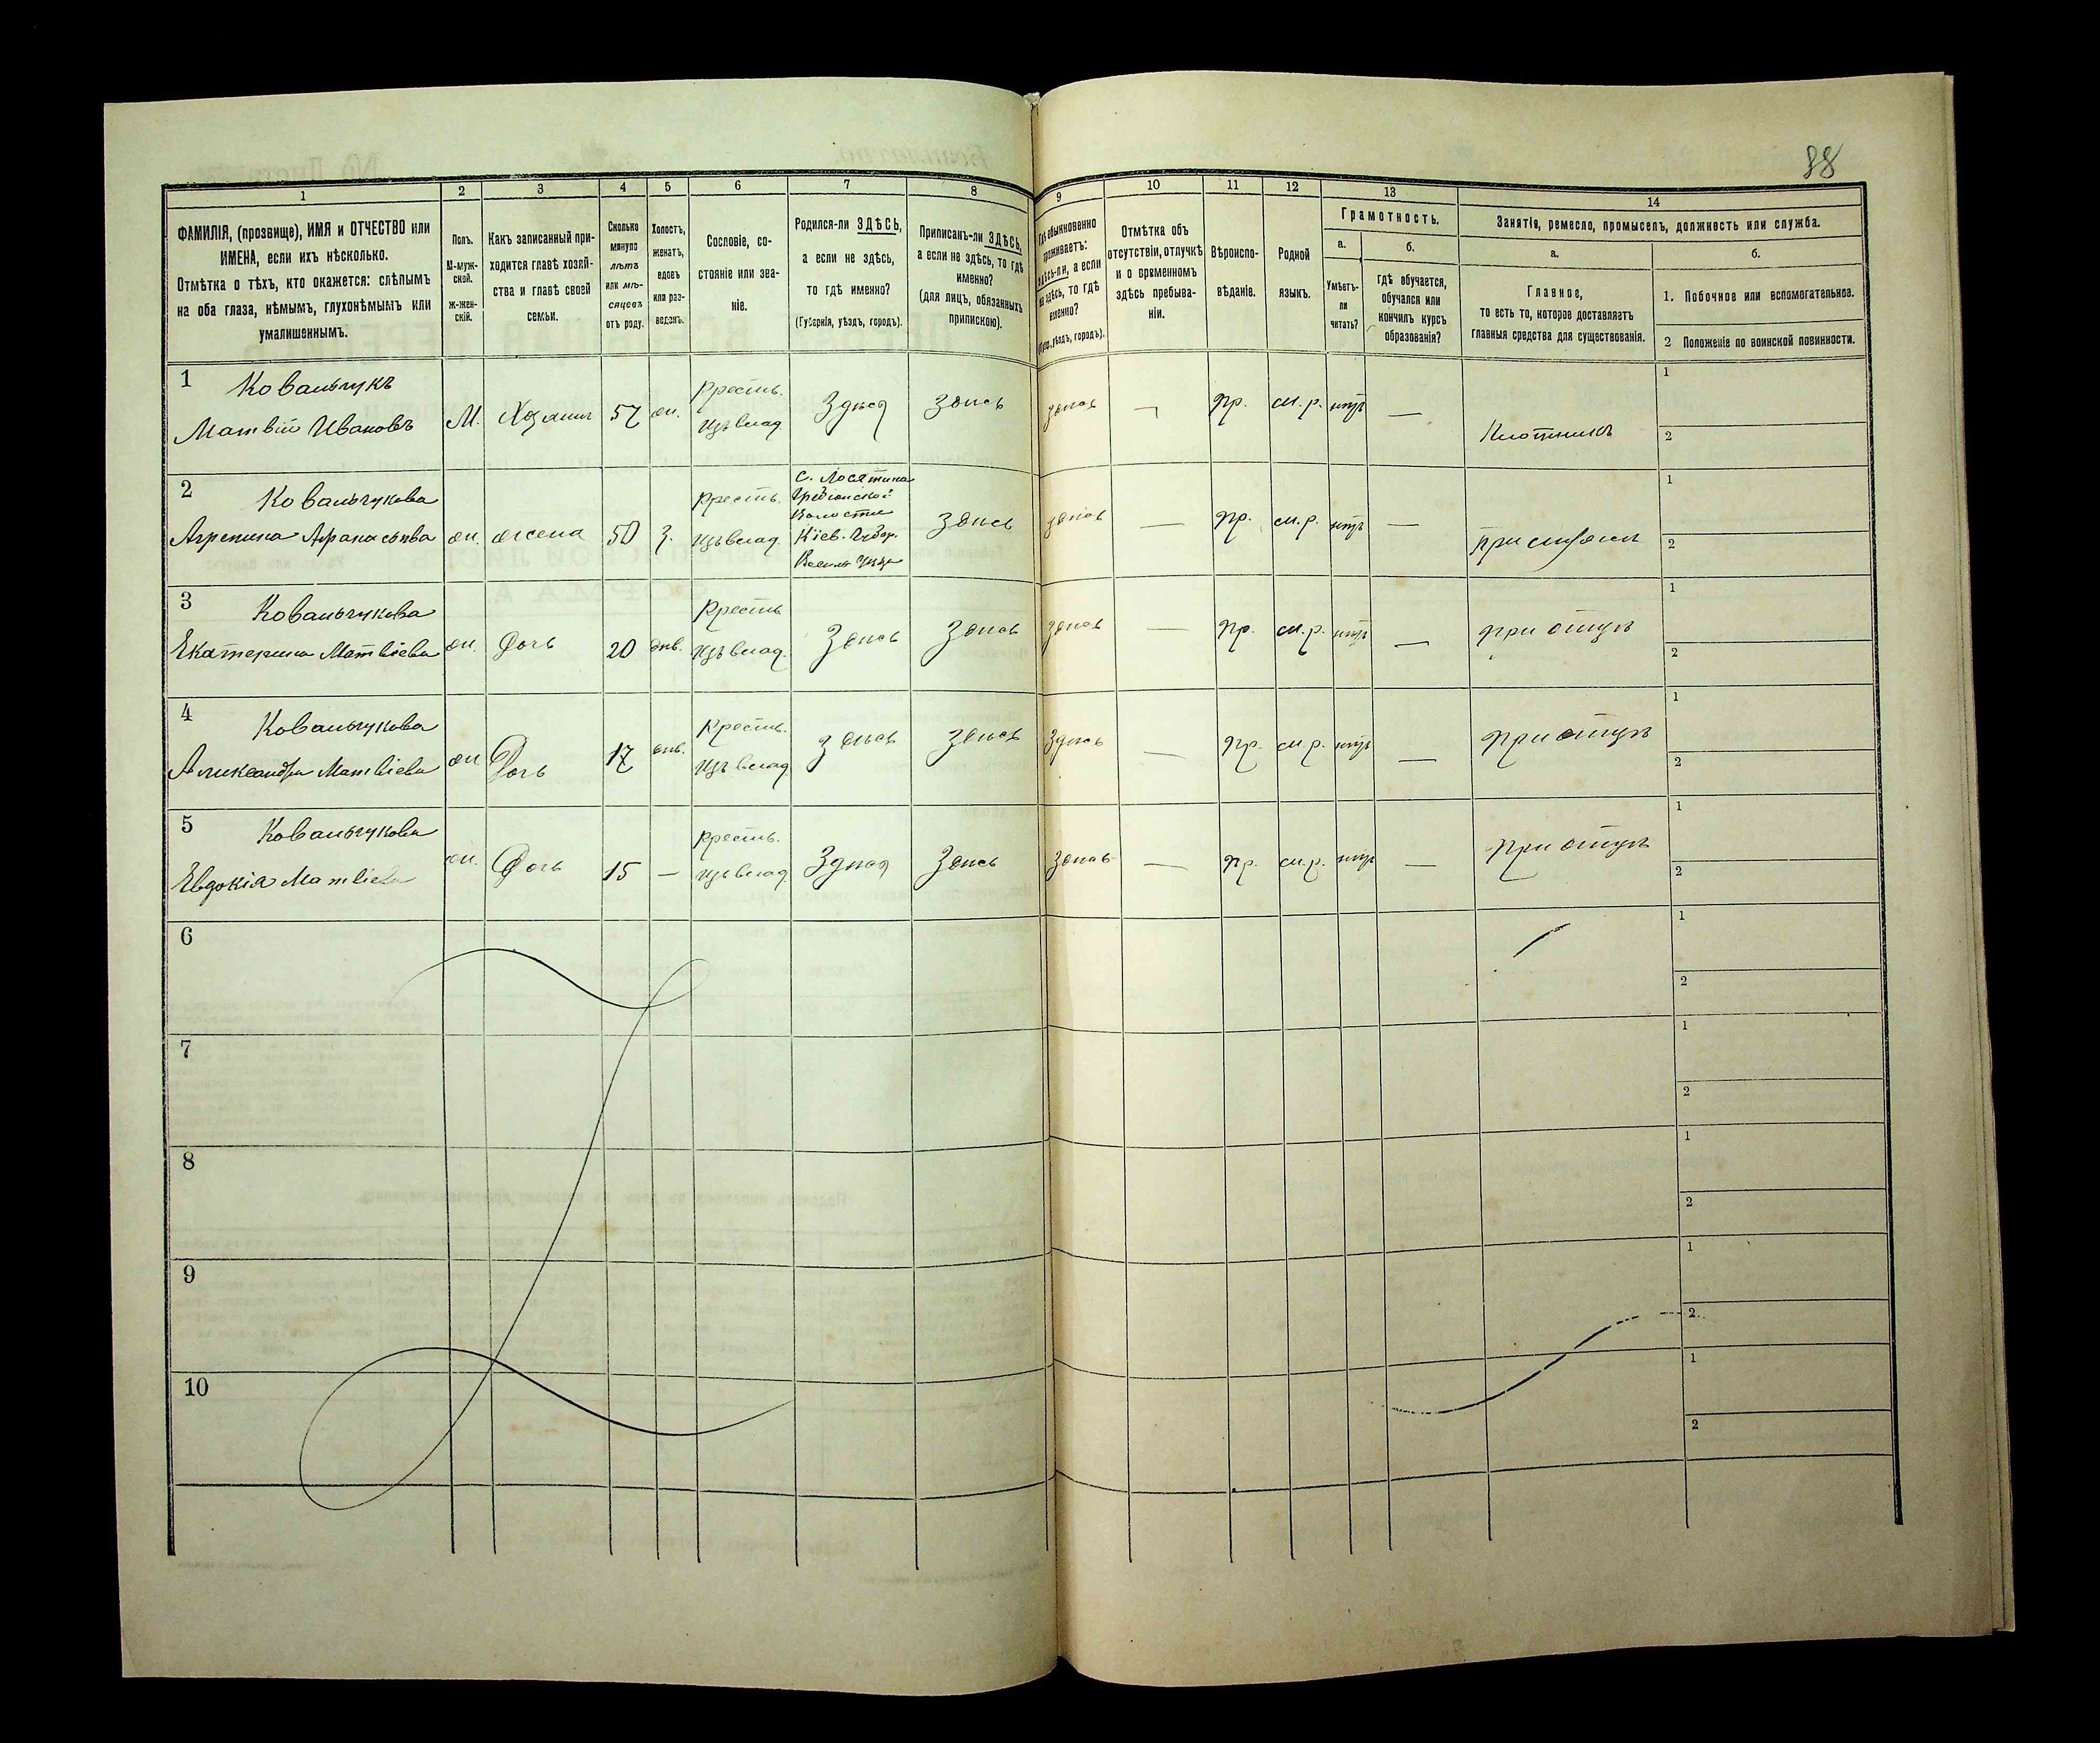 88
1 2 3 4 5 6 7 8 9 10 11 12 13 14
ФАМИЛІЯ, (прозвище), ИМЯ и ОТЧЕСТВО или
ИМЕНА, если ихъ нѣсколько.
Отмѣтка о тѣхъ, кто окажется: слѣпымъ
на оба глаза, нѣмымъ, глухонѣмымъ или
умалишеннымъ.
Полъ.
М-муж-
ской.
Ж-жен-
скій.
Какъ записанный при-
ходится главѣ хозяй-
ства и главѣ своей
семьи.
Сколько
минуло
лѣтъ
или мѣ-
сяцевъ
отъ роду.
Холостъ,
женатъ,
вдовъ
или раз-
веденъ.
Сословіе, со-
стояніе или зва-
ніе.
Родился-ли ЗДѢСЬ,
а если не здѣсь,
то гдѣ именно?
(Губернія, уѣздъ, городъ).
Приписанъ-ли ЗДѢСЬ,
а если не здѣсь, то гдѣ
именно?
(для лицъ, обязанныхъ
припискою).
Гдѣ обыкновенно
проживаетъ:
ЗДѢСЬ-ли, а если
не здѣсь, то гдѣ
именно?
(Губер., уѣздъ, городъ).
Отмѣтка объ
отсутствіи, отлучкѣ
и о временномъ
здѣсь пребыва-
ніи.
Вѣроиспо-
вѣданіе.
Родной
языкъ.
Грамотность.
а.
Умѣетъ-
ли
читать?
б.
гдѣ обучается,
обучался или
кончилъ курсъ
образованія?
Занятія, ремесло, промыселъ, должность или служба.
а.
Главное,
то есть то, которое доставляетъ
главныя средства для существованія.
б.
1. Побочное или вспомогательное.
2 Положеніе по воинской повинности.
1 Ковальчукъ
Матвій Ивановъ М. Хозяинъ 57 ж. Крестьян. изъ влад. Здѣсь Здѣсь здѣсь — пр. м.р. нѣтъ — Плотникъ 1 2
2 Ковальчукова
Агрепина Афанасьева ж. жена 50 з. Крестьян. изъ влад. С. Лосятина
Гребіонской
Волости
Кіев. Губер.
Васил. Уѣзд
Здѣсь здѣсь — пр. м.р. нѣтъ — при мужѣ 1 2
3 Ковальчукова
Екатерина Матвіева ж. Дочь 20 дѣв. Крестьян. изъ влад. Здѣсь Здѣсь Здѣсь — пр. м.р. нѣтъ — при отцѣ 1 2
4 Ковальчукова
Александра Матвіева ж. Дочь 17 дѣв. Крестьян. изъ влад. Здѣсь Здѣсь Здѣсь — пр. м.р. нѣтъ — при отцѣ 1 2
5 Ковальчукова
Евдокія Матвіева ж. Дочь 15 — Крестьян. изъ влад. Здѣсь Здѣсь Здѣсь — пр. м.р. нѣтъ — при отцѣ 1 2
6 1 2
7 1 2
8 1 2
9 1 2
10 1 2